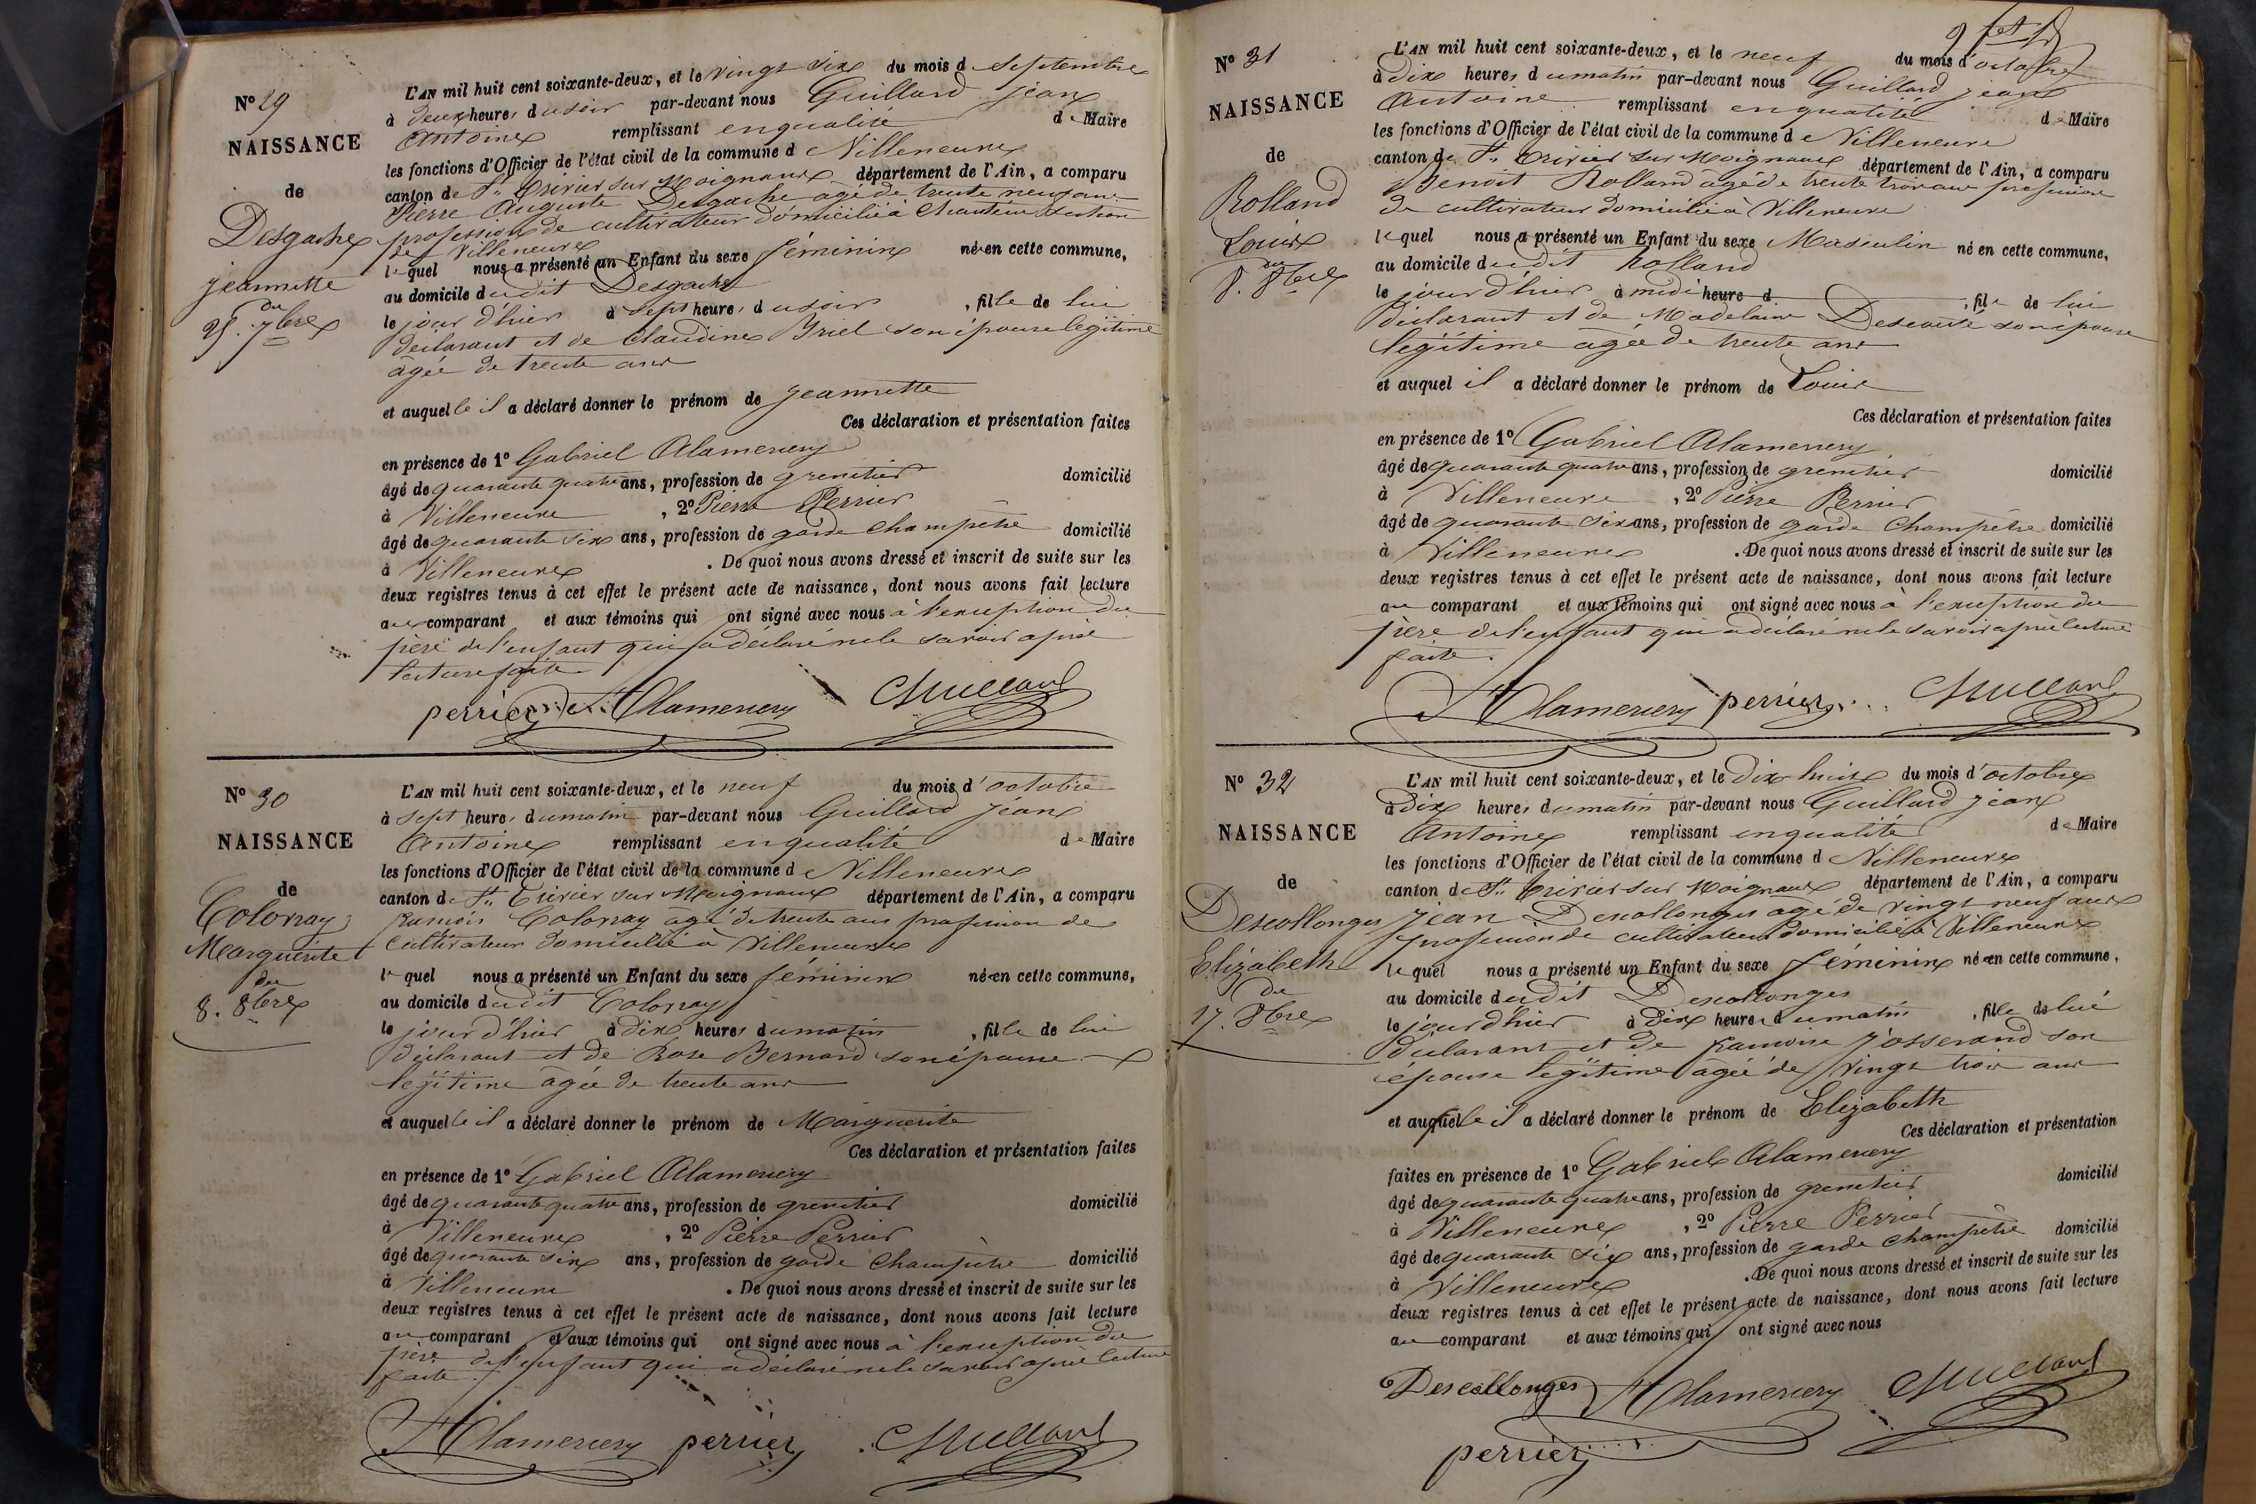 N° 29
NAISSANCE
de
Desgache
jeannette
du
25. 7bre
L'AN mil huit cent soixante-deux, et le vingt six du mois de septembre
à deux heures du soir par-devant nous Guillard jean
Antoine remplissant en qualité de Maire
les fonctions d'Officier de l'état civil de la commune de Villeneuve
canton de St. Trivier sur Moignans département de l'Ain, a comparu
Pierre Auguste Desgache agé de trente neuf ans
profession de cultivateur domicilié à Chanteins section
de Villeneuve
lequel nous a présenté un Enfant du sexe féminin née en cette commune,
au domicile dudit Desgache
le jour d'hier à sept heures du soir, fille de lui
déclarant et de Claudine Briel son épouse legitime
âgée de trente ans
et auquelle il a déclaré donner le prénom de jeannette
Ces déclaration et présentation faites
en présence de 1° Gabriel Alamercery
âgé de quarante quatre ans, profession de grenetier domicilié
à Villeneuve, 2° Pierre Perrier
âgé de quarante six ans, profession de garde champêtre domicilié
à Villeneuve. De quoi nous avons dressé et inscrit de suite sur les
deux registres tenus à cet effet le présent acte de naissance, dont nous avons fait lecture
au comparant et aux témoins qui ont signé avec nous à l'exception du
père de l'enfant qui a déclaré ne le savoir après
lecture faite
perrier Alamercery Guillard
N° 30
NAISSANCE
de
Colonray
Marguerite
du
8. 8bre
L'AN mil huit cent soixante-deux, et le neuf du mois d'octobre
à sept heures du matin par-devant nous Guillard Jean
Antoine remplissant en qualité de Maire
les fonctions d'Officier de l'état civil de la commune de Villeneuve
canton de St. Trivier sur Moignans département de l'Ain, a comparu
françois Colonray agé de trente ans profession de
cultivateur domicilié à Villeneuve
lequel nous a présenté un Enfant du sexe féminin née en cette commune,
au domicile dudit Colonray
le jour d'hier à dix heures du matin, fille de lui
déclarant et de Rose Bernard son épouse
legitime âgée de trente ans
et auquelle il a déclaré donner le prénom de Marguerite
Ces déclaration et présentation faites
en présence de 1° Gabriel Alamercery
âgé de quarante quatre ans, profession de grenetier domicilié
à Villeneuve, 2° Pierre Perrier
âgé de quarante six ans, profession de garde champêtre domicilié
à Villeneuve. De quoi nous avons dressé et inscrit de suite sur les
deux registres tenus à cet effet le présent acte de naissance, dont nous avons fait lecture
au comparant et aux témoins qui ont signé avec nous à l'exception du
père de l'enfant qui a déclaré ne le savoir après lecture
faite.
Alamercery perrier Guillard
N° 31
NAISSANCE
de
Rolland
Louis
du
8. 8bre
L'AN mil huit cent soixante-deux, et le neuf du mois d'octobre
à dix heures du matin par-devant nous Guillard jean
Antoine remplissant en qualité de Maire
les fonctions d'Officier de l'état civil de la commune de Villeneuve
canton de St. Trivier sur Moignans département de l'Ain, a comparu
Benoit Rolland âgé de trente trois ans profession
de cultivateur domicilié à Villeneuve
lequel nous a présenté un Enfant du sexe Masculin né en cette commune,
au domicile dudit Rolland
le jour d'hier à midi heure d, fils de lui
déclarant et de Madelaine son épouse
legitime agée de trente ans
et auquel il a déclaré donner le prénom de Louis
Ces déclaration et présentation faites
en présence de 1° Gabriel Alamercery
âgé de quarante quatre ans, profession de grenetier domicilié
à Villeneuve, 2° Pierre Perrier
âgé de quarante six ans, profession de garde champêtre domicilié
à Villeneuve. De quoi nous avons dressé et inscrit de suite sur les
deux registres tenus à cet effet le présent acte de naissance, dont nous avons fait lecture
au comparant et aux témoins qui ont signé avec nous à l'exception du
père de l'enfant qui a déclaré ne le savoir après lecture
faite.
Alamercery perrier Guillard
N° 32
NAISSANCE
de
Descollonges
Elizabeth
du
17. 8bre
L'AN mil huit cent soixante-deux, et le dix huit du mois d'octobre
à dix heures du matin par-devant nous Guillard jean
Antoine remplissant en qualité de Maire
les fonctions d'Officier de l'état civil de la commune de Villeneuve
canton de St. Trivier sur Moignans département de l'Ain, a comparu
Jean Descollonges agé de vingt neuf ans
profession de cultivateur domicilié à Villeneuve
lequel nous a présenté un Enfant du sexe féminin née en cette commune,
au domicile dudit Descollonges
le jour d'hier à dix heures du matin, fille de lui
déclarant et de françoise josserand son
épouse legitime agée de vingt trois ans
et auquelle il a déclaré donner le prénom de Elizabeth
Ces déclaration et présentation
faites en présence de 1° Gabriel Alamercery
âgé de quarante quatre ans, profession de grenetier domicilié
à Villeneuve, 2° Pierre Perrier
âgé de quarante six ans, profession de garde champêtre domicilié
à Villeneuve. De quoi nous avons dressé et inscrit de suite sur les
deux registres tenus à cet effet le présent acte de naissance, dont nous avons fait lecture
au comparant et aux témoins qui ont signé avec nous
Descollonges Alamercery Guillard
perrier